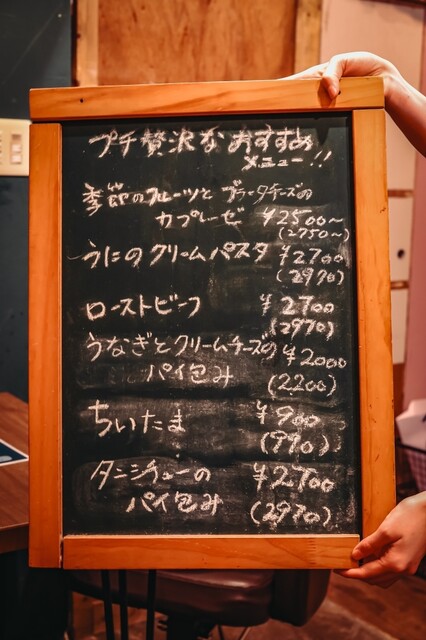 プチ贅沢なおすすめ
メニュー!!
季節のフルーツと ブラータチーズの
カプレーゼ ¥2500~
(2750~)
うにのクリームパスタ ¥2700
(2970)
ローストビーフ ¥2700
(2970)
うなぎとクリームチーズの ¥2000
パイ包み (2200)
ちいたま ¥900
(990)
タンシチューの ¥2700
パイ包み (2970)